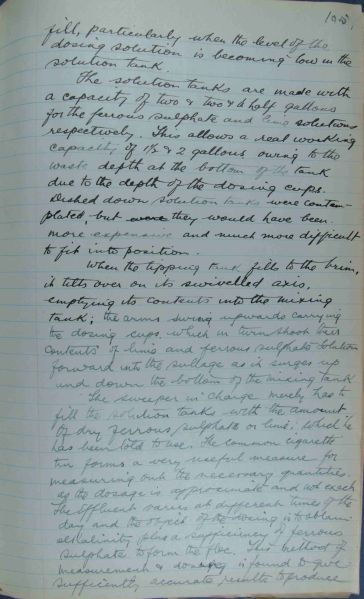 105.
fill, particularly when the level of the
dosing solution is becoming low in the
solution tank.
The solution tanks are made with
a capacity of two & two & a half gallons
for the ferrous sulphate and lime solutions
respectively. This allows a real working
capacity of 1½ & 2 gallons owing to the
waste depth at the bottom of the tank
due to the depth of the dosing cups.
Dished down solution tanks were contem-
plated, but they would have been
more expensive and much more difficult
to fit into position.
When the tipping tank fills to the brim,
it tilts over on its swivelled axis,
emptying its contents into the mixing
tank; the arms swing upwards carrying
the dosing cups which in turn shoot their
contents of lime and ferrous sulphate solution
forward into the sullage as it surges up
and down the bottom of the mixing tank
The sweeper in charge merely has to
fill the solution tanks with the amount
of dry ferrous sulphate or lime, which he
has been told to use. The common cigarette
tin forms a very useful measure for
measuring out the necessary quantities
as the dosage is approximate and not exact.
The effluent varies at different times of the
day and the object of the dosing is to obtain
alkalinity plus a sufficiency of ferrous
sulphate to form the floc. This method of
measurement & dosing is found to give
sufficiently accurate results to produce